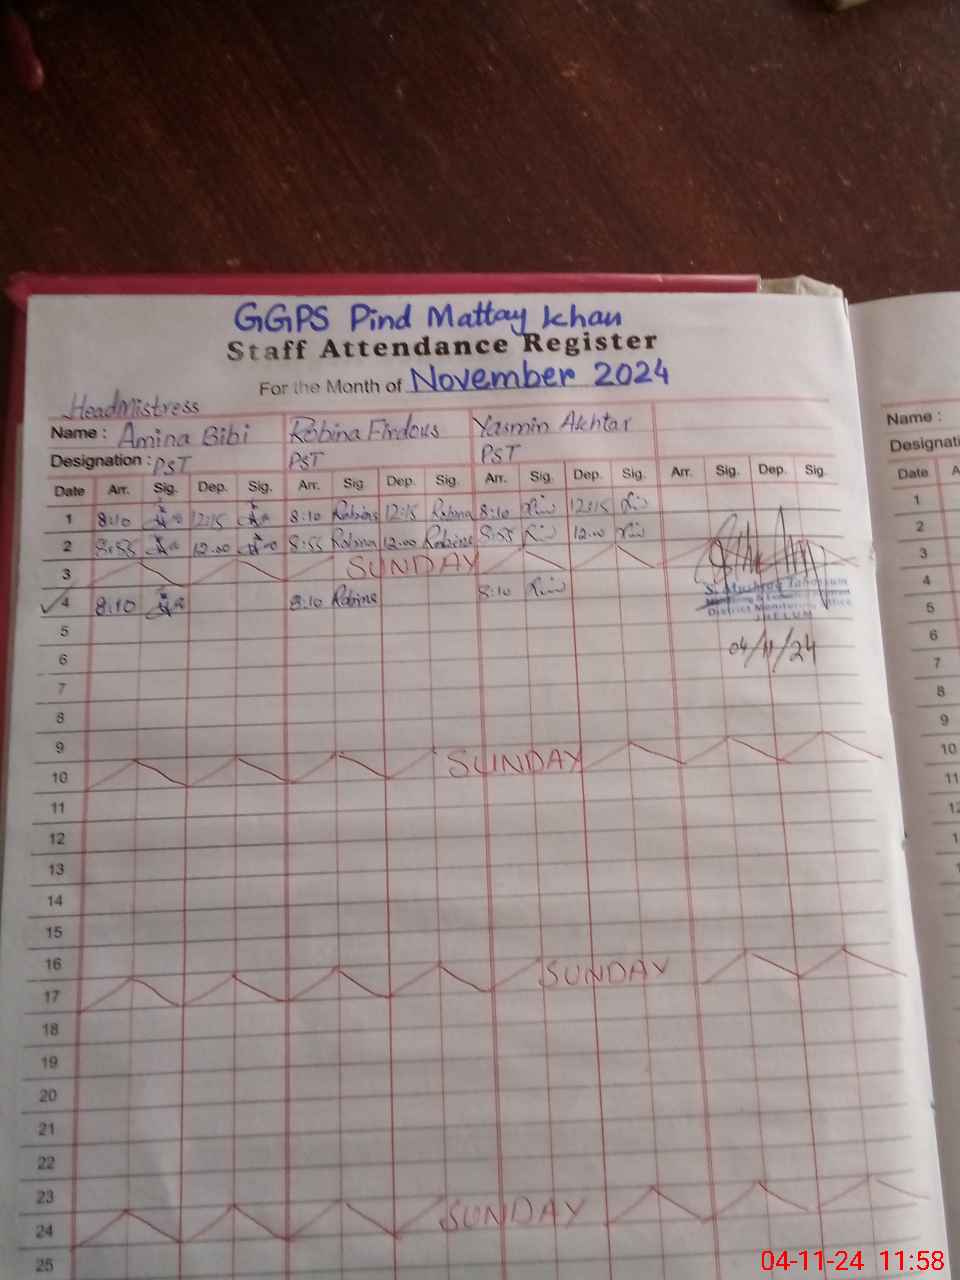 GGPS Pind Mattay Khan
Staff Attendance Register
For the Month of November 2024
HeadMistress
Name : Amina Bibi Robina Firdous Yasmin Akhtar
Designation : PST PST PST
Date Arr. Sig. Dep. Sig. Arr. Sig Dep. Sig. Arr. Sig. Dep. Sig. Arr. Sig. Dep. Sig.
1 8:10 12:15 8:10 Robina 12:15 Robina 8:10 12:15
2 8:55 12.00 8:55 Robina 12.00 Robina 8:55 12.00
3 SUNDAY
4 8:10 8:10 Robina 8:10
District Monitoring Office
JHELUM
04/11/24
5
6
7
8
9
10 SUNDAY
11
12
13
14
15
16
17 SUNDAY
18
19
20
21
22
23
24 SUNDAY
25
Name :
Date
1
2
3
4
5
6
7
8
9
10
11
04-11-24 11:58